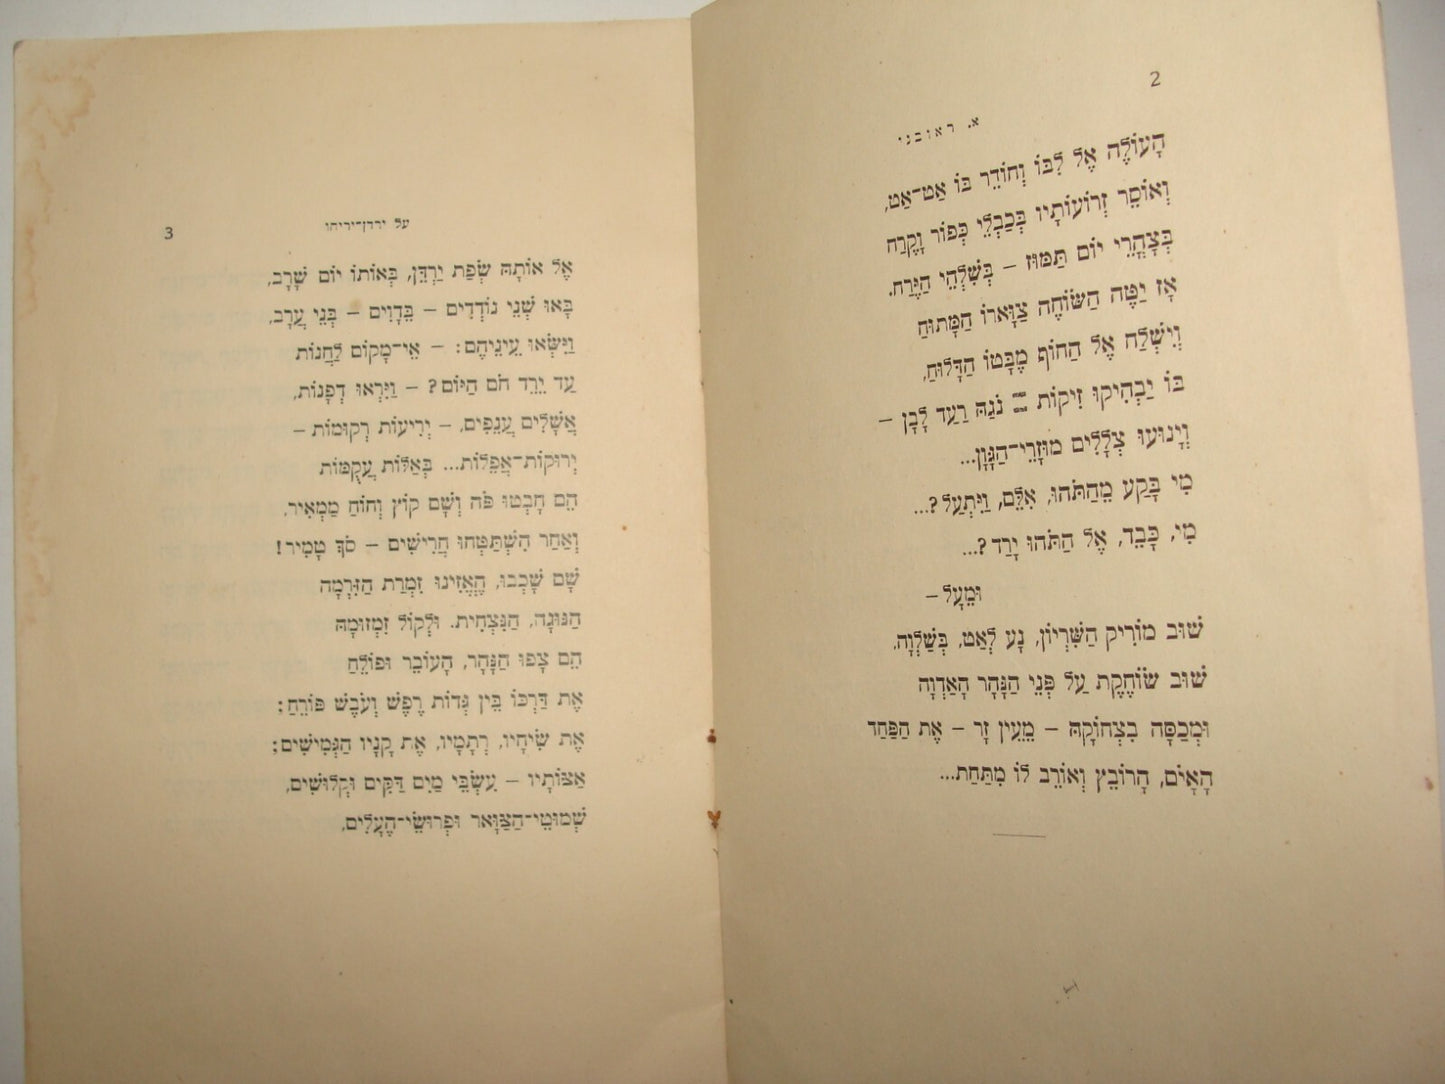 2
א. ראובני
הָעוֹלֶה אֶל לִבּוֹ וְחוֹדֵר בּוֹ אַט־אַט,
וְאוֹסֵר זְרוֹעוֹתָיו בְּכַבְלֵי כְּפוֹר וָקֶרַח
בְּצָהֳרֵי יוֹם תַּמּוּז – בְּשִׁלְהֵי הַיֶּרַח.
אָז יַטֶּה הַשּׂוֹחֶה צַוָּארוֹ הַמָּתוּחַ
וְיִשְׁלַח אֶל הַחוֹף מֶבָּטוֹ הַדָּלוּחַ,
בּוֹ יַבְהִיקוּ זִיקוֹת = נֹגַהּ רַעַד לָבָן –
וְיָנוּעוּ צְלָלִים מוּזָרֵי־הַגָּוָן...
מִי בָּקַע מֵהַתֹּהוּ, אִלֵּם, וַיִּתְעַל?...
מִי, כָּבֵד, אֶל הַתֹּהוּ יָרַד?...
וּמֵעָל –
שׁוּב מוֹרִיק הַשִּׁרְיוֹן, נָע לְאַט, בְּשַׁלְוָה,
שׁוּב שׂוֹחֶקֶת עַל פְּנֵי הַנָּהָר הָאַדְוָה
וּמְכַסָּה בִצְחוֹקָהּ – מֵעֵין זָר – אֶת הַפַּחַד
הָאָיֹם, הָרוֹבֵץ וְאוֹרֵב לוֹ מִתַּחַת...
על ירדן־יריחו
3
אֶל אוֹתָהּ שְׂפַת יַרְדֵּן, בְּאוֹתוֹ יוֹם שָׁרָב,
בָּאוּ שְׁנֵי נוֹדְדִים – בֵּדָוִים – בְּנֵי עֲרָב,
וַיִּשְׂאוּ עֵינֵיהֶם: – אֵי־מָקוֹם לַחֲנוֹת
עַד יֵרֵד חֹם הַיּוֹם? – וַיִּרְאוּ דְפָנוֹת,
אֲשָׁלִים עֲנֵפִים, – יְרִיעוֹת רְקוּמוֹת –
יְרוּקוֹת־אֲפֵלוֹת... בְּאַלּוֹת עֲקֻמּוֹת
הֵם חָבְטוּ פֹּה וְשָׁם קוֹץ וְחוֹחַ מַמְאִיר,
וְאַחַר הִשְׁתַּטְּחוּ חֲרִישִׁים – סֹךְ טָמִיר!
שָׁם שָׁכְבוּ, הֶאֱזִינוּ זִמְרַת הַזְּרָמָה
הַנּוּגָה, הַנִּצְחִית. וּלְקוֹל זִמְזוּמָהּ
הֵם צָפוּ הַנָּהָר, הָעוֹבֵר וּפוֹלֵחַ
אֶת דַּרְכּוֹ בֵּין גְּדוֹת רֶפֶשׁ וְעֹבֶשׁ פּוֹרֵחַ:
אֶת שִׂיחָיו, רְתָמָיו, אֶת קָנָיו הַגְּמִישִׁים:
אַצּוֹתָיו – עִשְׂבֵי מַיִם דַּקִּים וּקְלוּשִׁים,
שְׁמוּטֵי־הַצַּוָּאר וּפְרוּשֵׂי־הֶעָלִים,